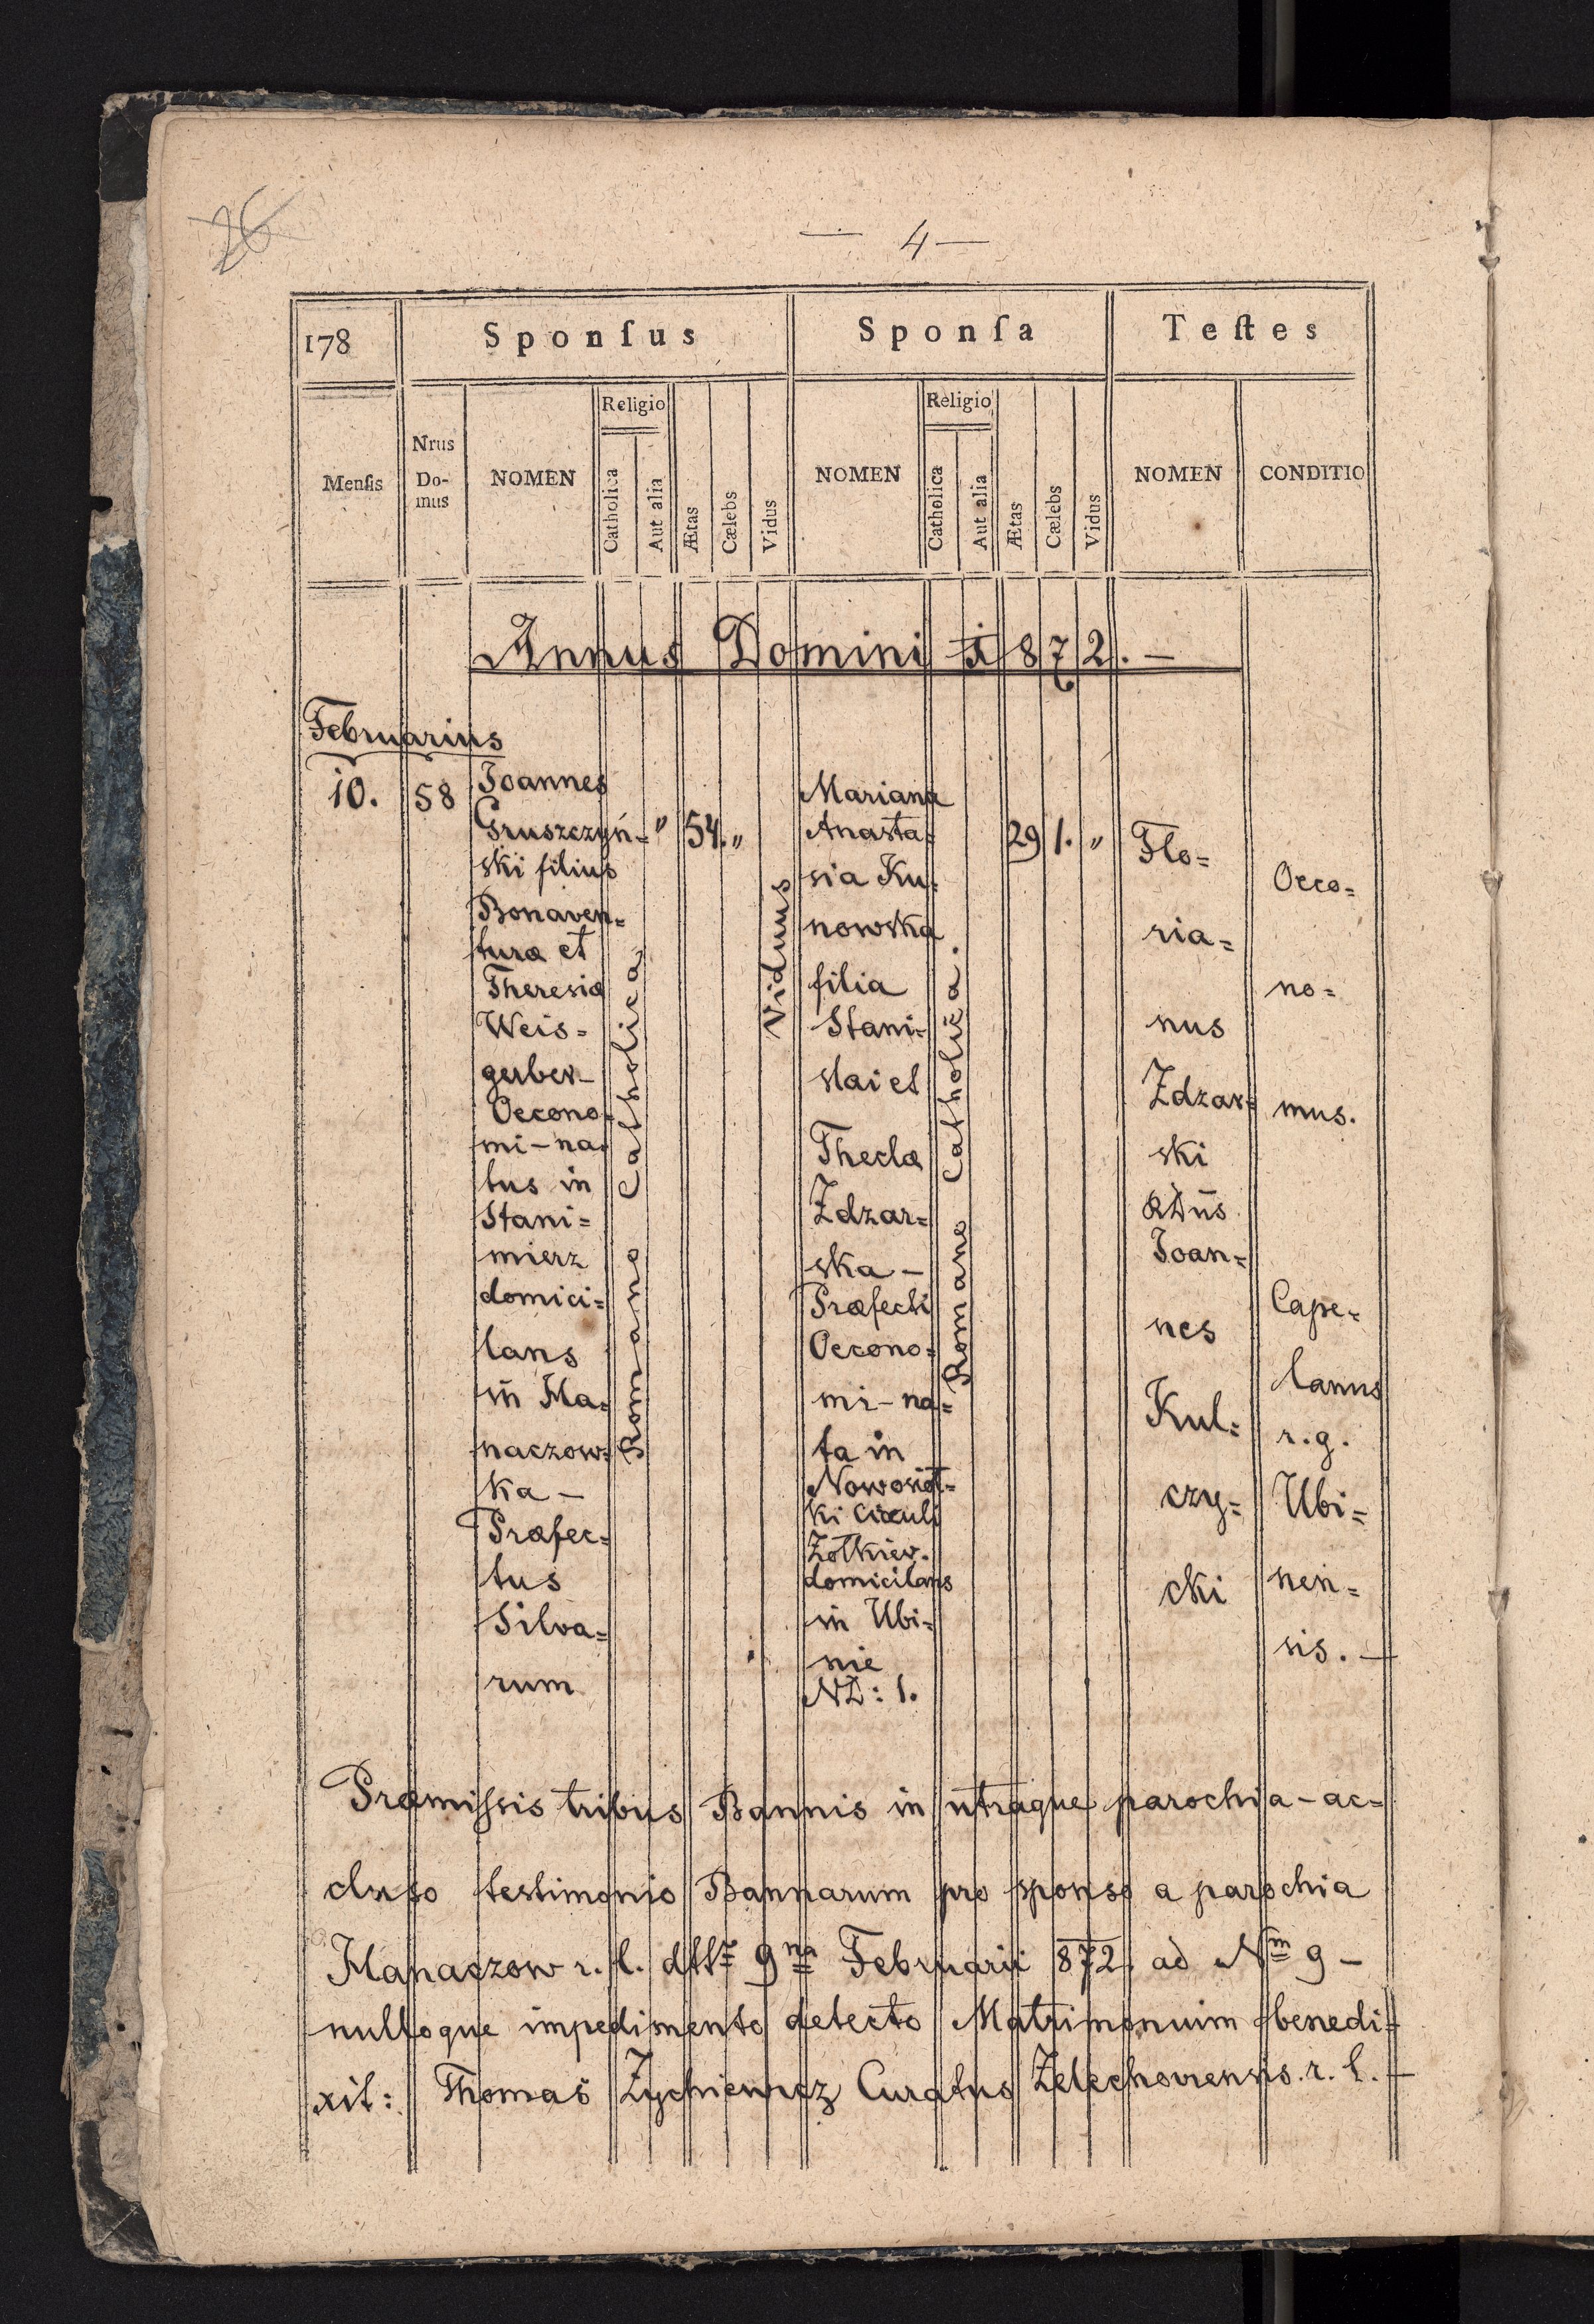 26
— 4 —
178
Sponſus
Sponſa
Teſtes
Menſis
Nrus
Do-
mus
NOMEN
Religio
Catholica
Aut alia
Ætas
Cælebs
Vidus
NOMEN
Religio
Catholica
Aut alia
Ætas
Cælebs
Vidus
NOMEN
CONDITIO
Annus Domini 1872. —
Februarius
10.
58
Joannes
Gruszczyń=
ski filius
Bonaven=
turæ et
Theresiæ
Weis=
gerber-
Oecono=
mi-na=
tus in
Stani=
mierz
domici=
lans
in Ha=
naczow=
ka —
Præfec=
tus
Silva=
rum
Romano Catholica
"
54.
"
Viduus
Mariana
Anasta=
sia Ku=
nowska
filia
Stani=
slai et
Theclæ
Zdzar=
ska —
Præfecti
Oecono=
mi-na=
ta in
Nowosioł=
ki Circuli
Żołkiew.
domicilans
in Ubi=
nie
ND: 1.
Romano Catholica.
29
1.
"
Flo=
ria=
nus
Zdzar=
ski
Joan=
nes
Kul=
czy=
cki
Oeco=
no=
mus.
Cape=
lanus
r. g.
Ubi=
nen=
sis. —
Præmissis tribus Bannis in utraque parochia - ac=
cluso testimonio Bannarum pro sponso a parochia
Hanaczow r. l. ddto 9na Februarii 872 ad Nm 9 —
nulloque impedimento detecto Matrimonium benedi=
xit: Thomas Zychiewicz Curatus Zelechoviensis. r. l. —